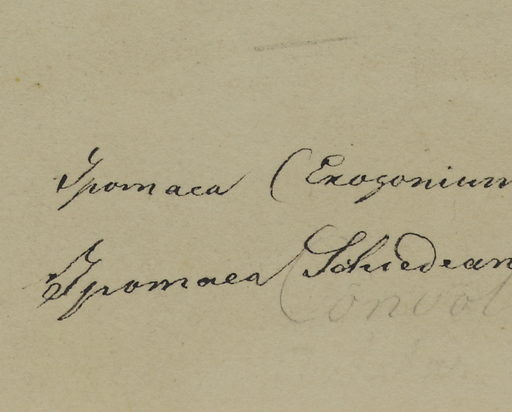 Ipomaea (Exogonium
Ipomaea Schiedean
(Convol